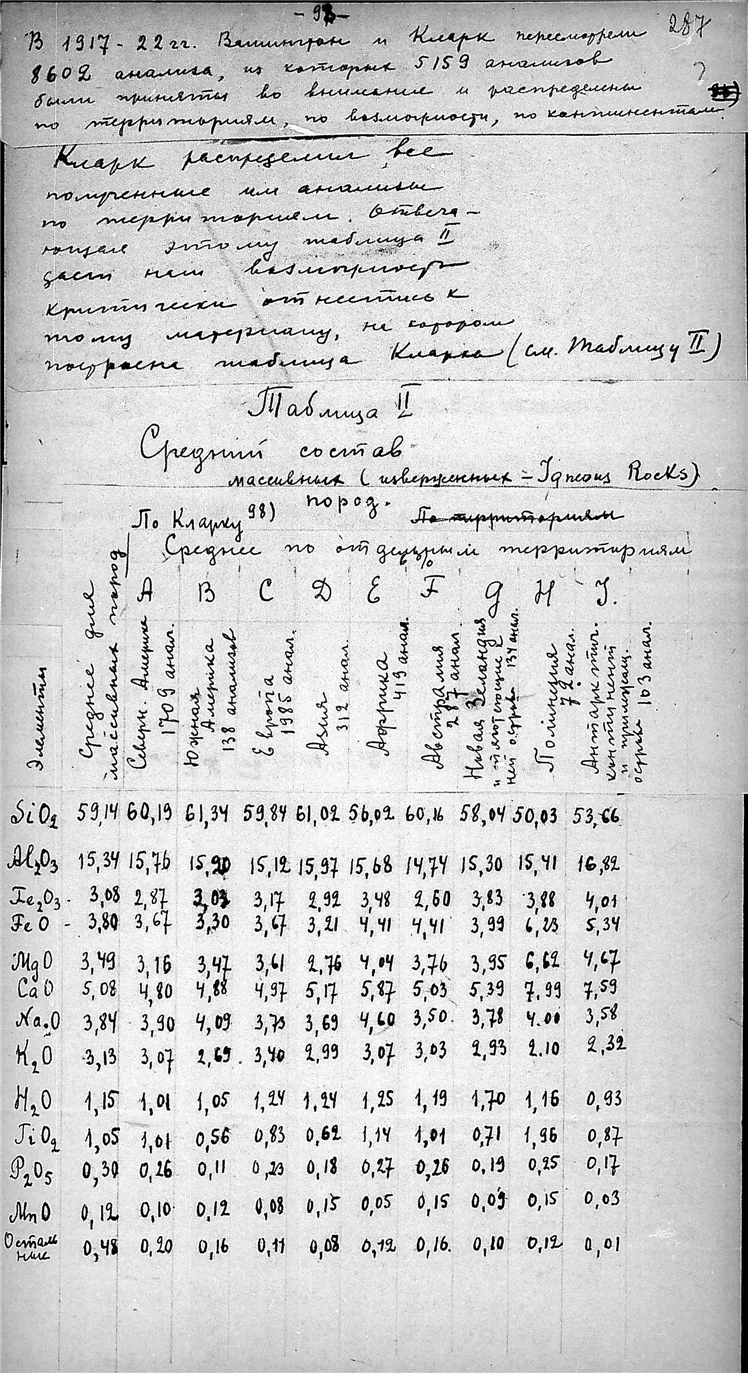 - 93 -
287
В 1917-22 гг. Вашингтон и Кларк пересмотрели
8602 анализа, из которых 5159 анализов
были приняты во внимание и распределены
по территориям, по возможности, по континентам.
Кларк распределил все
полученные им анализы
по территориям. Отвеча-
ющая этому таблица II
дает нам возможность
критически отнестись к
тому материалу, на котором
построена таблица Кларка (см. Таблицу II)
Таблица II
Средний состав
массивных (изверженных - Igneous Rocks)
пород.
По Кларку 98) По территориям
Среднее по отдельным территориям
%
A B C D E F G H J.
Элементы
Среднее для массивных пород
Северн. Америка 1709 анал.
Южная Америка 138 анализов
Европа 1985 анал.
Азия 312 анал.
Африка 419 анал.
Австралия 287 анал.
Новая Зеландия и тяготеющие к ней острова 134 анал.
Полинезия 72 анал.
Антарктич. континент и примыкающ. острова 103 анал.
SiO2 59,14 60,19 61,34 59,84 61,02 56,02 60,16 58,04 50,03 53,66
Al2O3 15,34 15,76 15,90 15,12 15,97 15,68 14,74 15,30 15,41 16,82
Fe2O3 - 3,08 2,87 3,03 3,17 2,92 3,48 2,60 3,83 3,88 4,01
FeO - 3,80 3,67 3,30 3,67 3,21 4,41 4,41 3,99 6,23 5,34
MgO 3,49 3,16 3,47 3,61 2,76 4,04 3,76 3,95 6,62 4,67
CaO 5,08 4,80 4,88 4,97 5,17 5,87 5,03 5,39 7,99 7,59
Na2O 3,84 3,90 4,09 3,73 3,69 4,60 3,50 3,78 4.00 3,58
K2O 3,13 3,07 2,69 3,40 2,99 3,07 3,03 2,93 2.10 2,32
H2O 1,15 1,01 1,05 1,24 1,24 1,25 1,19 1,70 1,16 0,93
TiO2 1,05 1,01 0,56 0,83 0,62 1,14 1,01 0,71 1,96 0,87
P2O5 0,30 0,26 0,11 0,23 0,18 0,27 0,26 0,19 0,25 0,17
MnO 0,12 0,10 0,12 0,08 0,15 0,05 0,15 0,09 0,15 0,03
Осталь
ных 0,48 0,20 0,16 0,11 0,08 0,12 0,16. 0,10 0,12 0,01